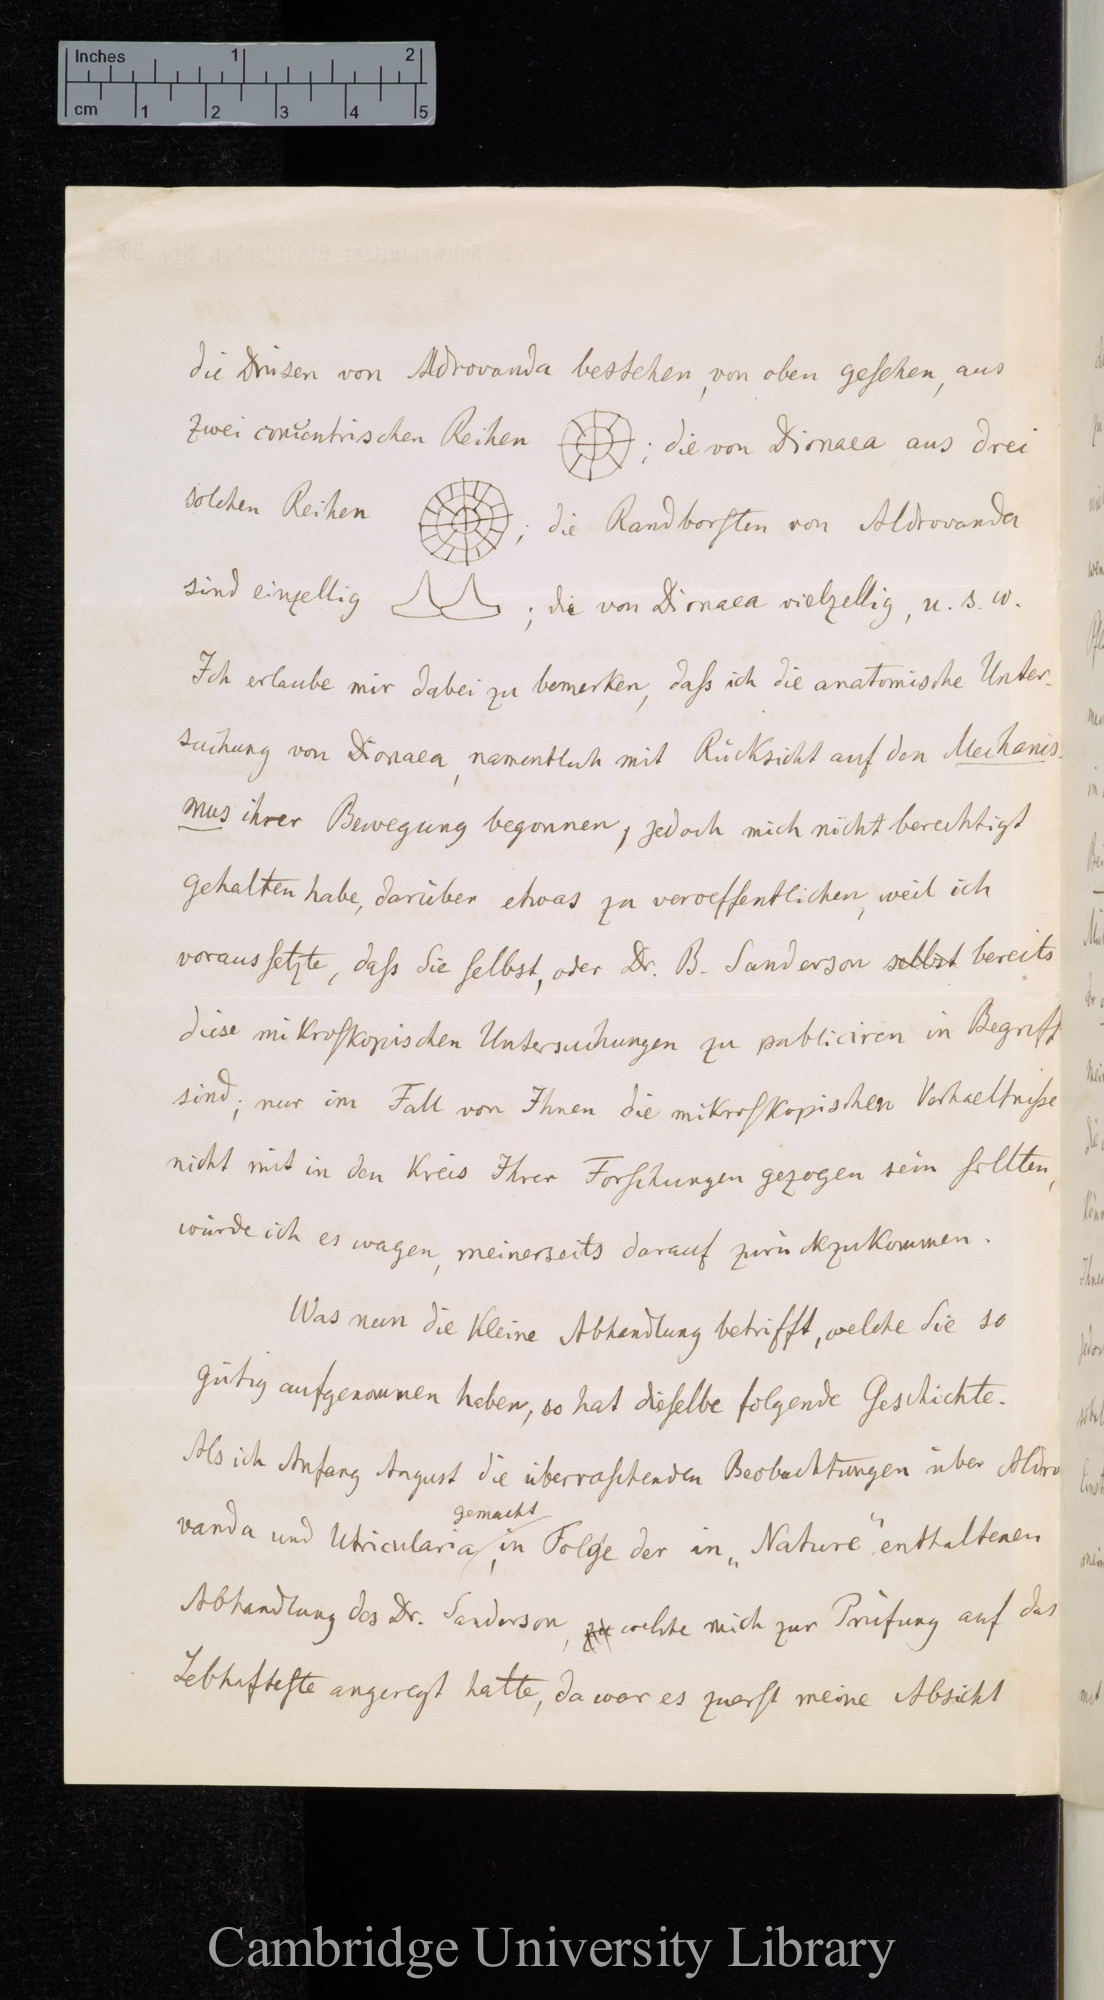 Inches 1 2
cm 1 2 3 4 5
die Drüsen von Aldrovanda bestehen, von oben gesehen, aus
zwei concentrischen Reihen ; die von Dionaea aus drei
solchen Reihen ; die Randborsten von Aldrovanda
sind einzellig ; die von Dionaea vielzellig, u. s. w.
Ich erlaube mir dabei zu bemerken, dass ich die anatomische Unter-
suchung von Dionaea, namentlich mit Rücksicht auf den Mechanis-
mus ihrer Bewegung begonnen, jedoch mich nicht berechtigt
gehalten habe, darüber etwas zu veroeffentlichen, weil ich
voraussetzte, dass Sie selbst, oder Dr. B. Sanderson selbst bereits
diese mikroskopischen Untersuchungen zu publiciren in Begriff
sind; nur im Fall von Ihnen die mikroskopischen Verhaeltnisse
nicht mit in den Kreis Ihrer Forschungen gezogen sein sollten,
würde ich es wagen, meinerseits darauf zurückzukommen.
Was nun die kleine Abhandlung betrifft, welche Sie so
gütig aufgenommen haben, so hat dieselbe folgende Geschichte.
Als ich Anfang August die überraschenden Beobachtungen über Aldro
gemacht
vanda und Utricularia, in Folge der in „Nature“ enthaltenen
Abhandlung des Dr. Sanderson, zu welche mich zur Prüfung auf das
Lebhafteste angeregt hatte, da war es zuerst meine Absicht
Cambridge University Library